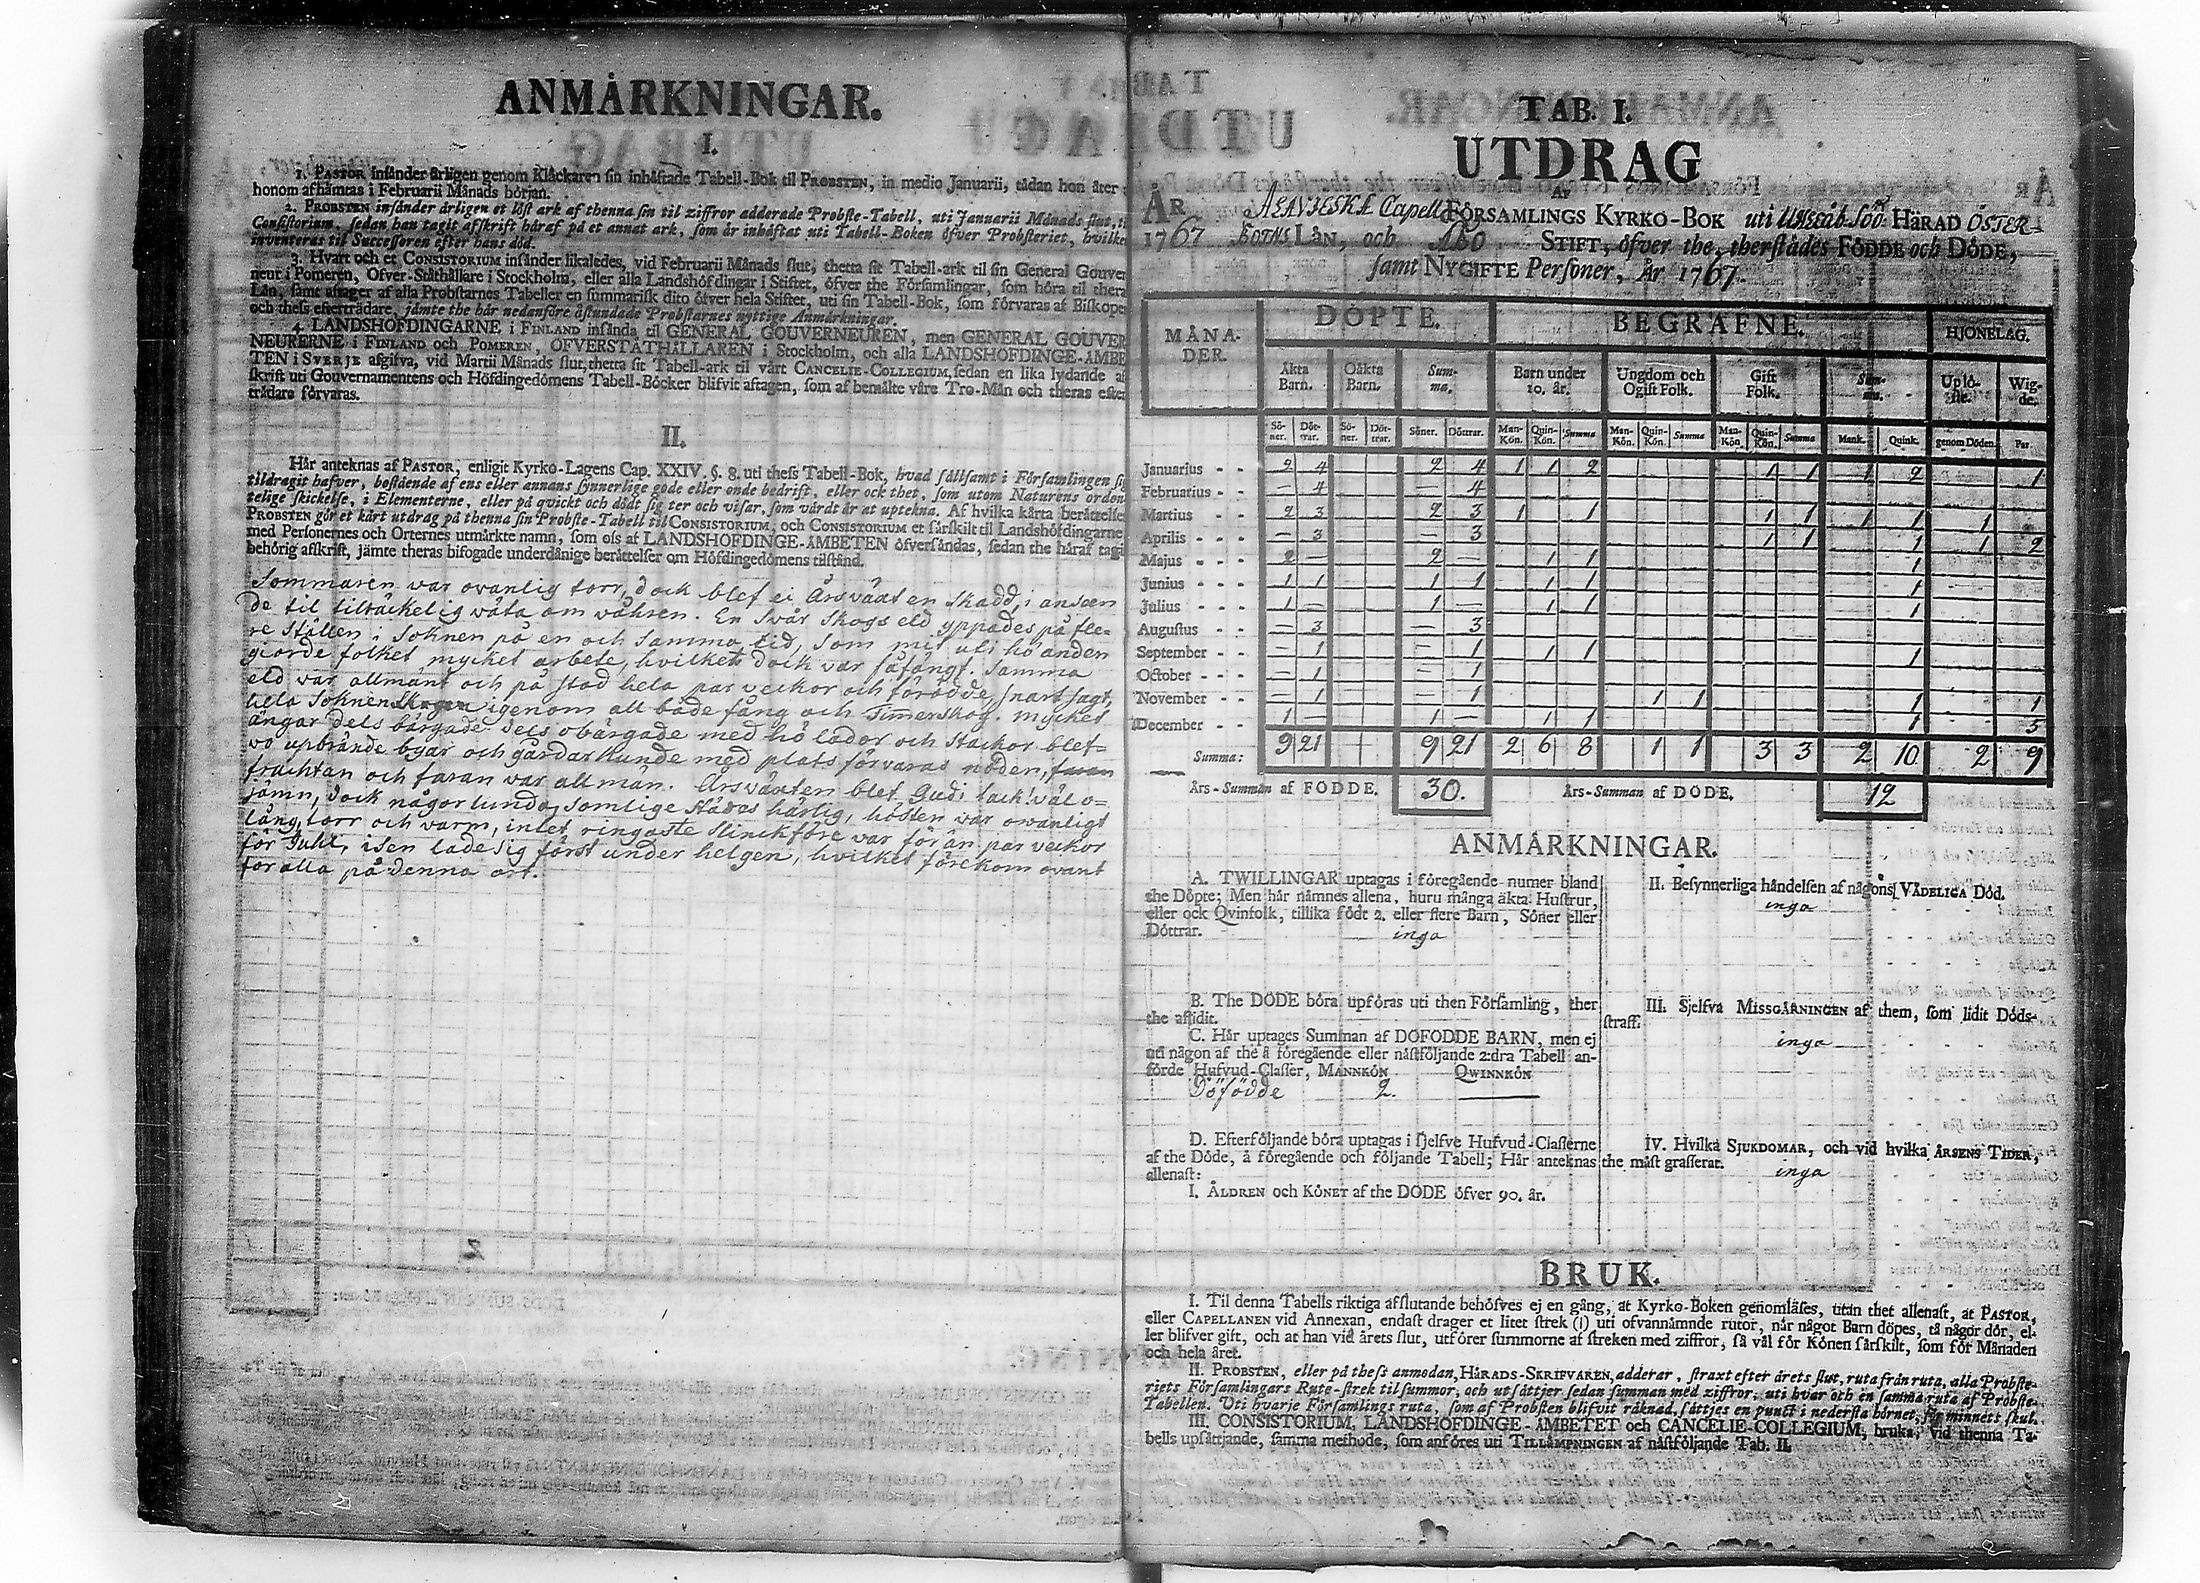 ANMÄRKNINGAR.
I.
1. PASTOR insänder årligen genom Klåckaren sin inhäftade Tabell-Bok til PROBSTEN, in medio Januarii, tädan hon åter
honom afhämtas i Februarii Månads början.
2. PROBSTEN insänder årligen et löst ark af thenna sin til ziffror adderade Probste-Tabell, uti Januarii Månads slut, til
Consistorium, sedan han tagit afskrift häraf på et annat ark, som är inhäftat uti Tabell-Boken öfver Probsteriet, hvilken
inventeras til Successoren efter hans död.
3. Hvart och et CONSISTORIUM insänder likaledes, vid Februarii Månads slut, thetta sit Tabell-ark til sin General Gouver
neur i Pomeren, Öfver-Ståthållare i Stockholm, eller alla Landshöfdingar i Stiftet, öfver the Församlingar, som höra til thera
Län, samt aftager af alla Probstarnes Tabeller en summarisk dito öfver hela Stiftet, uti sin Tabell-Bok, som förvaras af Biskopen
och thess efterträdare, jämte the här nedanföre åstundade Probstarnes nyttige Anmärkningar.
4. LANDSHÖFDINGARNE i FINLAND insända til GENERAL GOUVERNEUREN, men GENERAL GOUVER
NEURERNE i FINLAND och POMEREN, ÖFVERSTÅTHÅLLAREN i Stockholm, och alla LANDSHÖFDINGE-ÄMBE
TEN i SVERJE afgifva, vid Martii Månads slut, thetta sit Tabell-ark til vårt CANCELIE-COLLEGIUM, sedan en lika lydande af
skrift uti Gouvernamentens och Höfdingedömens Tabell-Böcker blifvit aftagen, som af bemälte våre Tro-Män och theras efter
trädare förvaras.
II.
Här anteknas af PASTOR, enligit Kyrko-Lagens Cap. XXIV. §. 8. uti thess Tabell-Bok, hvad sällsamt i Församlingen sig
tildragit hafver, bestående af ens eller annans synnerlige gode eller onde bedrift, eller ock thet, som utom Naturens orden
telige skickelse, i Elementerne, eller på qvickt och dödt sig ter och visar, som värdt är at uptekna. Af hvilka korta berättelser
PROBSTEN gör et kårt utdrag på thenna sin Probste-Tabell til CONSISTORIUM, och CONSISTORIUM et särskilt til Landshöfdingarne
med Personernes och Orternes utmärkte namn, som oss af LANDSHÖFDINGE-ÄMBETEN öfversändas, sedan the häraf tagit
behörig afskrift, jämte theras bifogade underdånige berättelser om Höfdingedömens tilstånd.
Sommaren war ovanlig torr, dock blef ei Årsväxten skadd, i anseen
de til tilräckelig wäta om wåhren. En svår Skogs eld yppades på fle=
re ställen i Soknen på en och samma tid, som mit uti höanden
giorde folket mycket arbete, hvilket dock var fåfängt. Samma
eld war allmänt och på stod hela par veckor och förödde, snart sagt,
hela Soknen igenom all både fång och Timerskog. mycket
ängar dels bärgade dels obärgade med hö lador och stackor blef=
vo upbrände byar och gårdar kunde med plats förvaras nöden,
fruchtan och faran war allmän. Årsväxten blef Gudi tack! väl o=
jämn, dock någorlunda, somlige städes härlig, hösten war ovanligt
lång, torr och varm, intet ringaste Slinckföre var för än par veckor
för Juhl, isen lade sig först under helgen, hvilket förekom ovant
för alla på denna ort.
TAB. I.
UTDRAG
AF
ÅR ALAVIESKA Capell FÖRSAMLINGS KYRKO-BOK uti HÄRAD ÖSTER-
1767 BOTNS LÄN, och Åbo STIFT, öfver the, therstädes FÖDDE och DÖDE,
samt NYGIFTE Personer, År 1767.
MÅNA-DER. DÖPTE. BEGRAFNE. HJONELAG.
Äkta Barn. Oäkta Barn. Summa. Barn under 10. år. Ungdom och Ogift Folk. Gift Folk. Summa. Uplöste. Wigde.
Söner. Döttrar. Söner. Döttrar. Söner. Döttrar. Man-Kön. Quin-Kön. Summa Man-Kön. Quin-Kön. Summa Man-Kön. Quin-Kön. Summa Mank. Quink. genom Döden. Par.
Januarius - - 2 4 2 4 1 1 2 1 1 1 2 1
Februarius - - — 4 — 4
Martius - - - 2 3 2 3 1 1 1 1 1 1 1
Aprilis - - - — 3 — 3 1 1 1 1 2
Majus - - - 2 — 2 — 1 1 1
Junius - - - 1 1 1 1 1 1 1
Julius - - - 1 — 1 — 1 1 1
Augustus - - — 3 — 3
September - - — 1 — 1 1 1 1
October - - - — 1 — 1
November - - — 1 — 1 1 1 1 1
December - - 1 — 1 — 1 1 1 5
Summa: 9 21 9 21 2 6 8 1 1 3 3 2 10 2 9
Års-Summan af FÖDDE. 30. Års-Summan af DÖDE. 12
ANMÄRKNINGAR.
A. TWILLINGAR uptagas i föregående numer bland
the Döpte; Men här nämnes allena, huru många äkta Hustrur,
eller ock Qvinfolk, tillika födt 2. eller flere Barn, Söner eller
Döttrar. inga
B. The DÖDE böra upföras uti then Församling, ther
the aflidit.
C. Här uptages Summan af DÖFÖDDE BARN, men ej
uti någon af the å föregående eller nästföljande 2:dra Tabell an-
förde Hufvud-Classer, MANNKÖN QWINNKÖN
Döfödde 2. —
D. Efterföljande böra uptagas i sjelfve Hufvud-Classerne
af the Döde, å föregående och följande Tabell; Här anteknas
allenast:
I. ÅLDREN och KÖNET af the DÖDE öfver 90. år.
II. Besynnerliga händelsen af någons VÅDELIGA Död.
inga
III. Sjelfva MISSGÄRNINGEN af them, som lidit Döds-
straff.
inga
IV. Hvilka SJUKDOMAR, och vid hvilka ÅRSENS TIDER,
the mäst grasserat. inga
BRUK.
I. Til denna Tabells riktiga afslutande behöfves ej en gång, at Kyrko-Boken genomläses, utan thet allenast, at PASTOR,
eller CAPELLANEN vid Annexan, endast drager et litet strek (|) uti ofvannämnde rutor, när något Barn döpes, tå någor dör, el-
ler blifver gift, och at han vid årets slut, utförer summorne af streken med ziffror, så väl för Könen särskilt, som för Månaden
och hela året.
II. PROBSTEN, eller på thess anmodan, HÄRADS-SKRIFVAREN, adderar, straxt efter årets slut, ruta från ruta, alla Probste-
riets Församlingars Rute-strek til summor, och utsättjer sedan summan med ziffror, uti hvar och en samma ruta af Probste-
Tabellen. Uti hvarje Församlings ruta, som af Probsten blifvit räknad, sättjes en punct i nedersta hörnet, för minnets skul.
III. CONSISTORIUM, LANDSHÖFDINGE-ÄMBETET och CANCELIE-COLLEGIUM, bruka, vid thenna Ta-
bells upsättjande, samma methode, som anföres uti TILLÄMPNINGEN af nästföljande Tab. II.